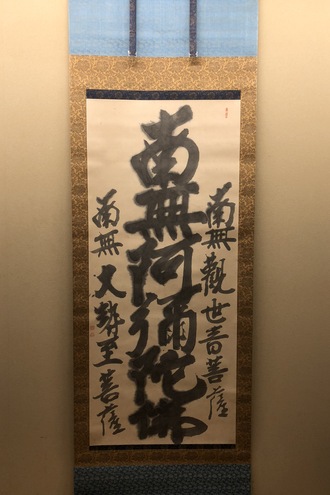 南無觀世音菩薩
南無阿彌陀佛
南無大勢至菩薩